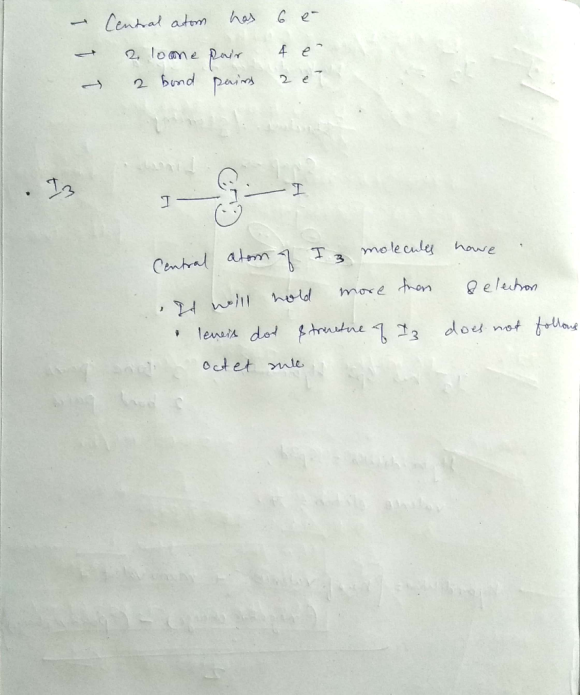 → Central atom has 6 e⁻
→ 2 loone pair 4 e⁻
→ 2 bond pairs 2 e⁻
• I3
I — I — I
Central atom of I3 molecules have
• It will hold more then 8 electron
• lewis dot structure of I3 does not follows
octet rule